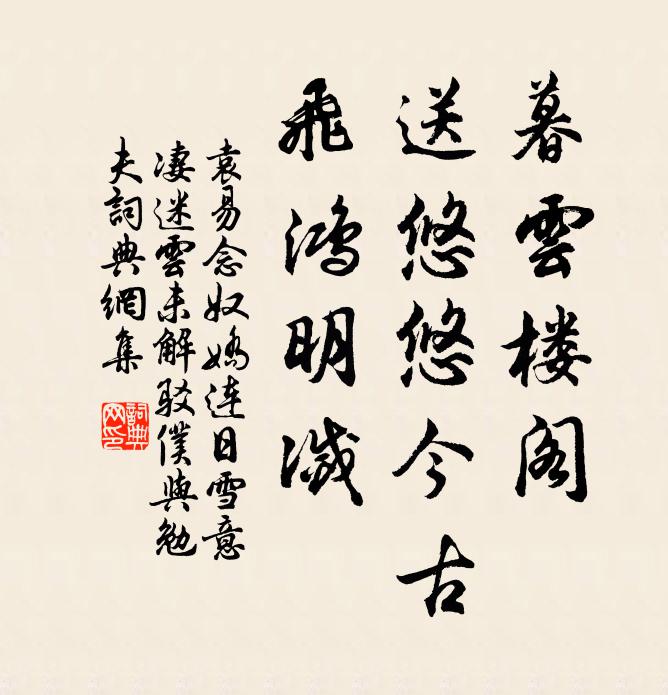 暮雲楼阁
送悠悠今古
飛鴻明滅
袁易念奴嬌連日雪意
凄迷雲未解駁僕與勉
夫詞典網集
詞典网印